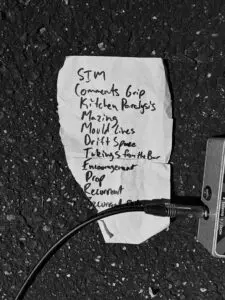 STM
Comments Grip
Kitchen Paralysis
Mazing
Mould Lines
Drift Space
Takings from the Bar
Encouragement
Drop
Recurrent
Recurrent